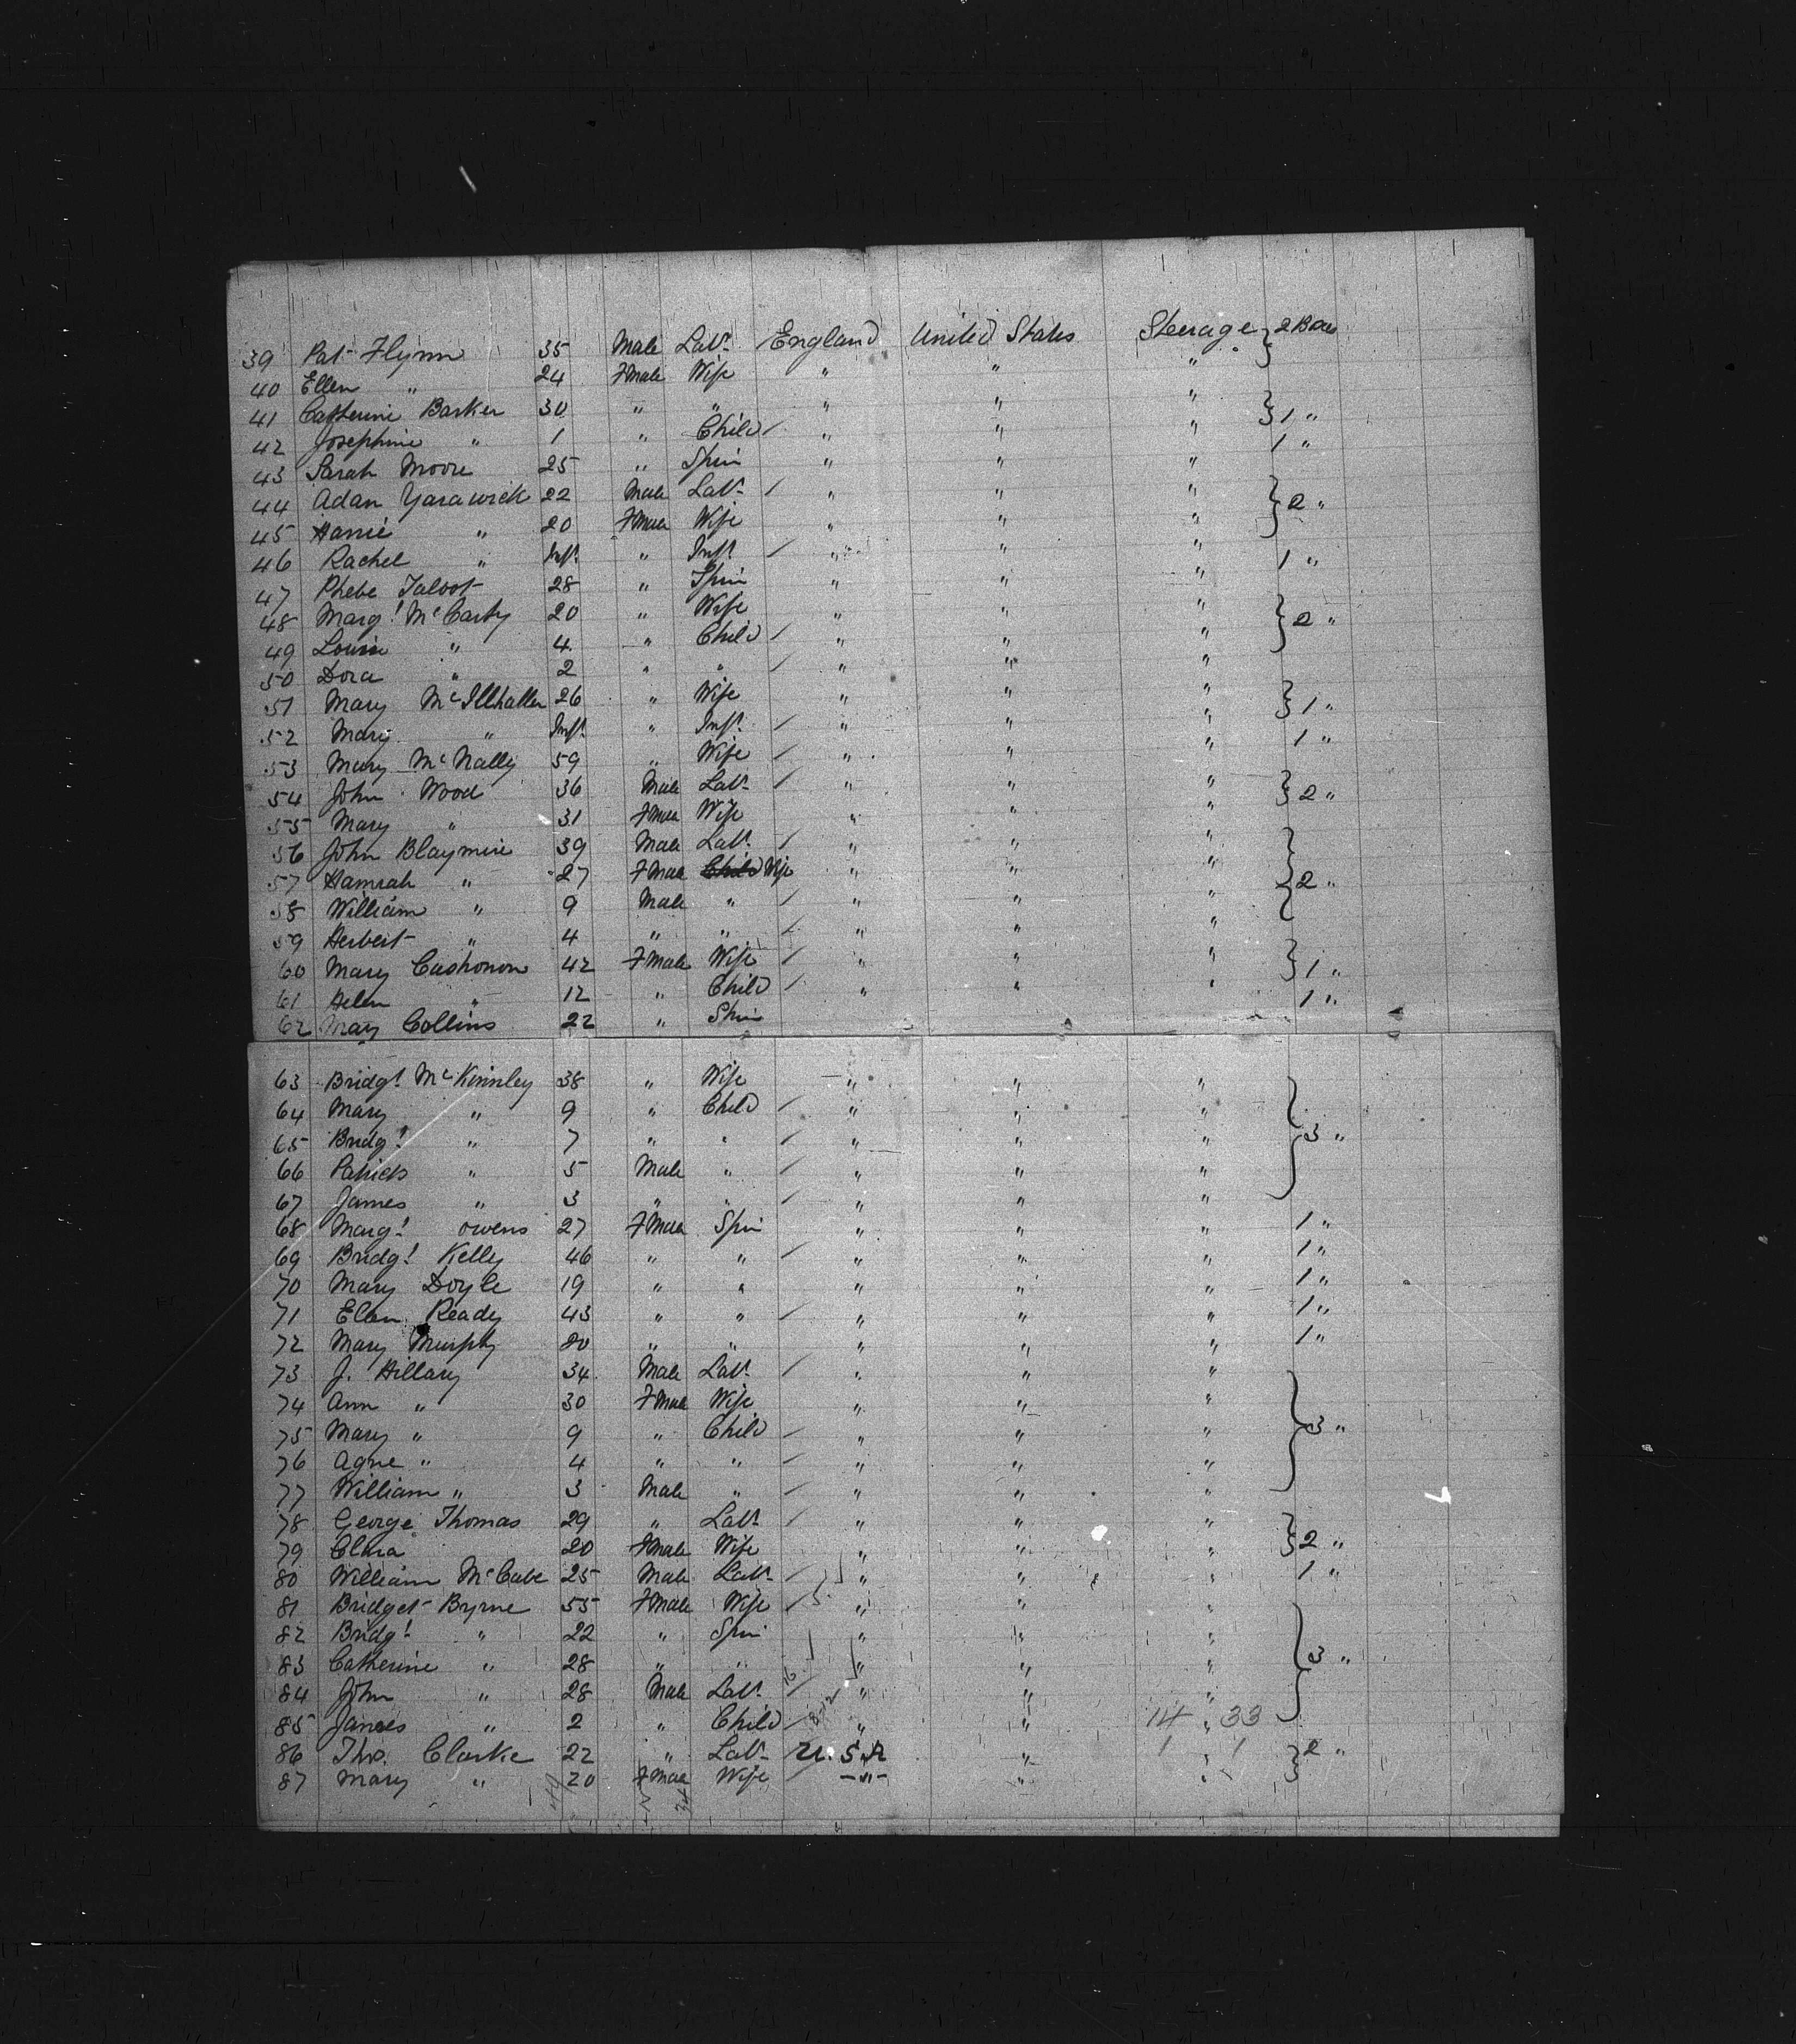 39 Pat Flynn 35 Male Labr England United States Steerage } 2 Boxes
40 Ellen " 24 Fmale Wife " " "
41 Catherine Barker 30 " " " " " } 1 "
42 Josephine " 1 " Child / " " "
43 Sarah Moore 25 " Spin " " " 1 "
44 Adan Yarawick 22 Male Labr / " " " } 2 "
45 " 20 Fmale Wife " " "
46 Rachel " Inft " Inft / " " "
47 Phebe Talbot 28 " Spin " " " 1 "
48 Margt McCarty 20 " Wife " " " } 2 "
49 Louisa " 4 " Child / " " "
50 Dora " 2 " " / " " "
51 Mary McIllhatten 26 " Wife " " " } 1 "
52 Mary " Inft " Inft / " " "
53 Mary McNally 59 " Wife / " " " 1 "
54 John Wood 36 Male Labr / " " " } 2 "
55 Mary " 31 Fmale Wife " " "
56 John Blaymire 39 Male Labr / " " " } 2 "
57 Hannah " 27 Fmale Child Wife " " "
58 William " 9 Male " / " " "
59 Herbert " 4 " " / " " "
60 Mary Cushonon 42 Fmale Wife / " " " } 1 "
61 Helen " 12 " Child / " " "
62 Mary Collins 22 " Spin 1 "
63 Bridgt McKinnley 38 " Wife " " " } 3 "
64 Mary " 9 " Child / " " "
65 Bridgt " 7 " " / " " "
66 Patrick " 5 Male " / " " "
67 James " 3 " " / " " "
68 Margt Owens 27 Fmale Spin " " " 1 "
69 Bridgt Kelly 46 " " / " " " 1 "
70 Mary Doyle 19 " " " " " 1 "
71 Ellen Ready 43 " " / " " " 1 "
72 Mary Murphy 20 " " " " " 1 "
73 J. Hillary 34 Male Labr / " " " } 3 "
74 Ann " 30 Fmale Wife " " "
75 Mary " 9 " Child / " " "
76 Agne " 4 " " / " " "
77 William " 3 Male " / " " "
78 George Thomas 29 " Labr / " " " } 2 "
79 Clara " 20 Fmale Wife " " "
80 William McCabe 25 Male Labr / " " " 1 "
81 Bridget Byrne 55 Fmale Wife / 5 " " " } 3 "
82 Bridgt " 22 " Spin " " "
83 Catherine " 28 " " " " "
84 John " 28 Male Labr / " " "
85 James " 2 " Child / " " 14 " 33
86 Thos. Clarke 22 " Labr U.S.A " 1 " 1 } 2 "
87 Mary " 20 Fmale Wife / " " "